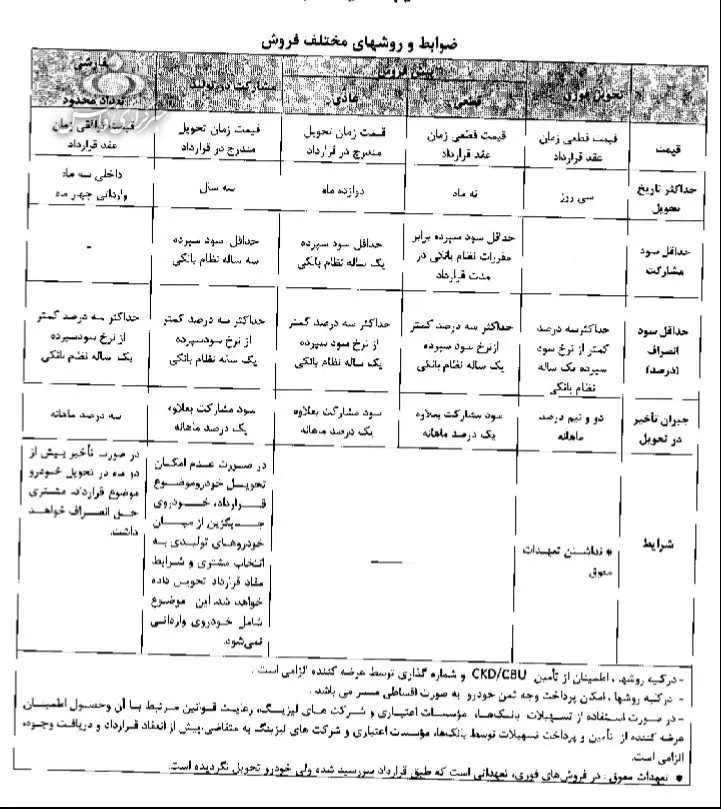 ضوابط و روشهای مختلف فروش
تحویل فوری
پیش فروش
قطعی
عادی
مشارکت در تولید
سفارشی
تعداد محدود
قیمت
قیمت قطعی زمان
عقد قرارداد
قیمت قطعی زمان
عقد قرارداد
قیمت زمان تحویل
مندرج در قرارداد
قیمت زمان تحویل
مندرج در قرارداد
قیمت توافقی زمان
عقد قرارداد
حداکثر تاریخ
تحویل
سی روز
نه ماه
دوازده ماه
سه سال
داخلی سه ماه
وارداتی چهار ماه
حداقل سود
مشارکت
حداقل سود سپرده برابر
مقررات نظام بانکی در
مدت قرارداد
حداقل سود سپرده
یک ساله نظام بانکی
حداقل سود سپرده
سه ساله نظام بانکی
-
حداقل سود
انصراف
(درصد)
حداکثر سه درصد
کمتر از نرخ سود
سپرده یک ساله
نظام بانکی
حداکثر سه درصد کمتر
از نرخ سود سپرده
یک ساله نظام بانکی
حداکثر سه درصد کمتر
از نرخ سود سپرده
یک ساله نظام بانکی
حداکثر سه درصد کمتر
از نرخ سودسپرده
یک ساله نظام بانکی
حداکثر سه درصد کمتر
از نرخ سودسپرده
یک ساله نظام بانکی
جبران تأخیر
در تحویل
دو و نیم درصد
ماهانه
سود مشارکت بعلاوه
یک درصد ماهانه
سود مشارکت بعلاوه
یک درصد ماهانه
سود مشارکت بعلاوه
یک درصد ماهانه
سه درصد ماهانه
شرایط
* نداشتن تعهدات
معوق
در صورت عدم امکان
تحویل خودروموضوع
قرارداد، خودروی
جایگزین از میان
خودروهای تولیدی به
انتخاب مشتری و شرایط
مفاد قرارداد تحویل داده
خواهد شد. این موضوع
شامل خودروی وارداتی
نمی‌شود.
در صورت تأخیر بیش از
دو ماه در تحویل خودرو
موضوع قرارداد، مشتری
حق انصراف خواهد
داشت.
- درکلیه روشها، اطمینان از تأمین CKD/CBU و شماره گذاری توسط عرضه کننده الزامی است.
- درکلیه روشها، امکان پرداخت وجه ثمن خودرو به صورت اقساطی میسر می باشد.
- در صورت استفاده از تسهیلات بانک‌ها، مؤسسات اعتباری و شرکت های لیزینگ، رعایت قوانین مرتبط با آن وحصول اطمینان
عرضه کننده از تأمین و پرداخت تسهیلات توسط بانک‌ها، مؤسسات اعتباری و شرکت های لیزینگ به متقاضی،پیش از انعقاد قرارداد و دریافت وجوه،
الزامی است.
* تعهدات معوق: در فروش‌های فوری، تعهداتی است که طبق قرارداد سررسید شده ولی خودرو تحویل نگردیده است.